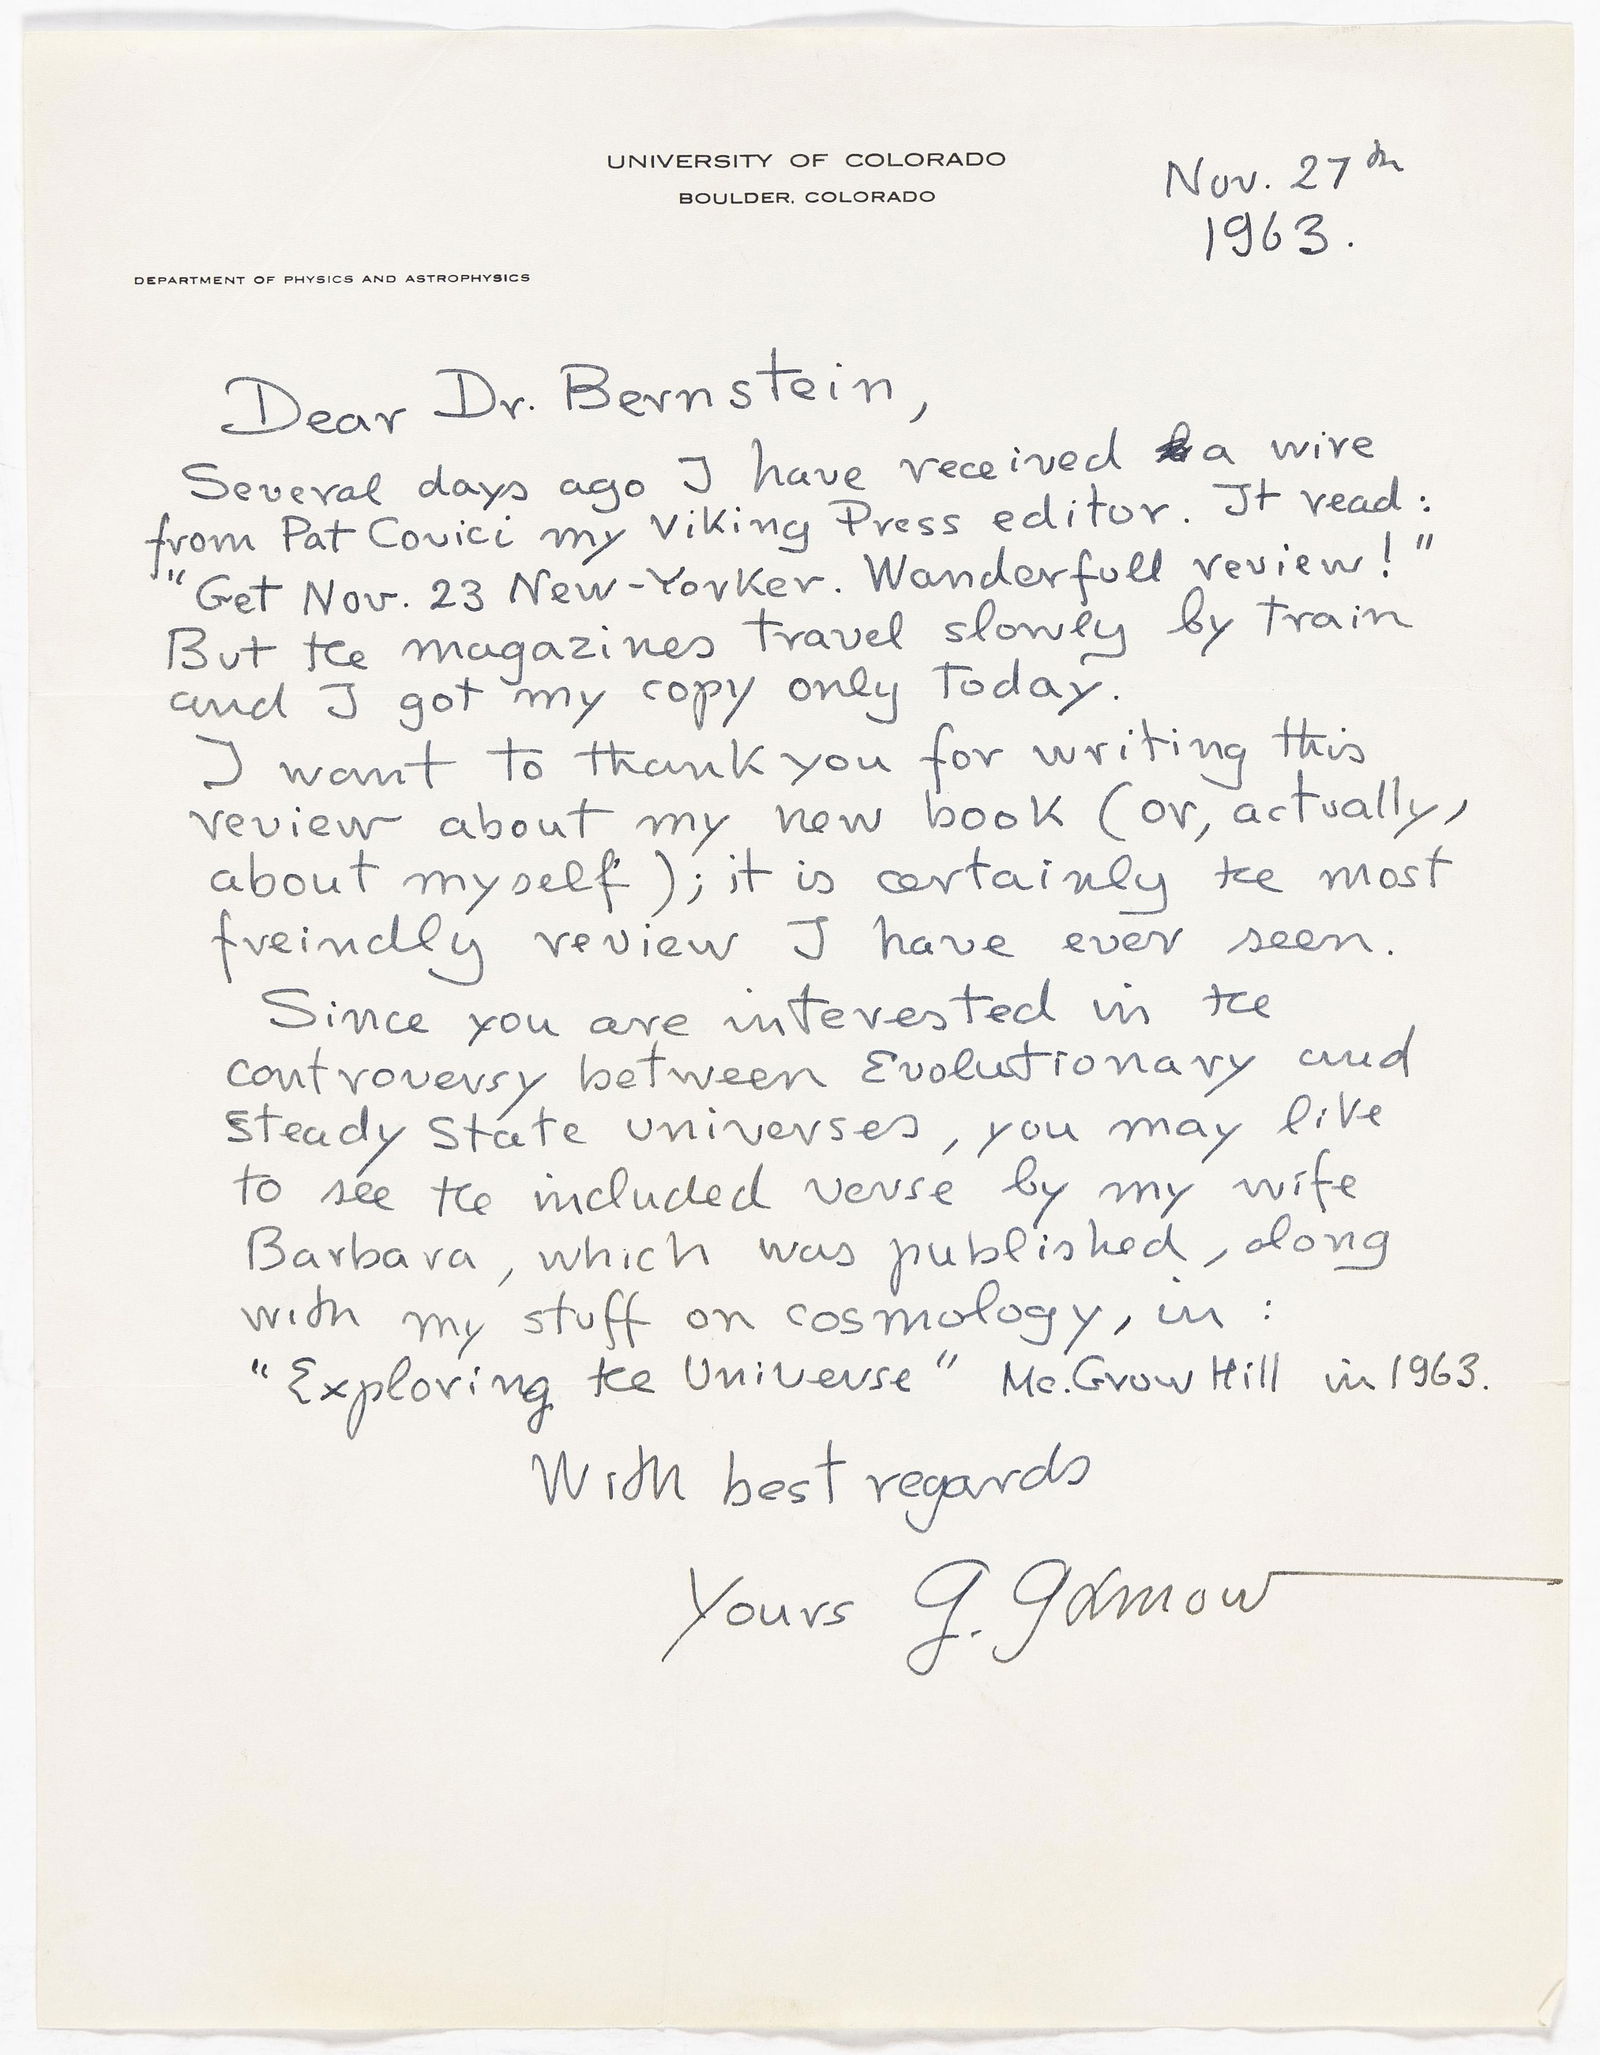 UNIVERSITY OF COLORADO
BOULDER, COLORADO
Nov. 27th
1963.
DEPARTMENT OF PHYSICS AND ASTROPHYSICS
Dear Dr. Bernstein,
Several days ago I have received a wire
from Pat Covici my Viking Press editor. It read:
"Get Nov. 23 New-Yorker. Wanderfull review!"
But the magazines travel slowly by train
and I got my copy only today.
I want to thank you for writing this
review about my new book (or, actually,
about myself); it is certainly the most
freindly review I have ever seen.
Since you are interested in the
controversy between Evolutionary and
Steady State universes, you may like
to see the included verse by my wife
Barbara, which was published, along
with my stuff on cosmology, in:
"Exploring the Universe" Mc.Grow Hill in 1963.
With best regards
Yours G. Gamow